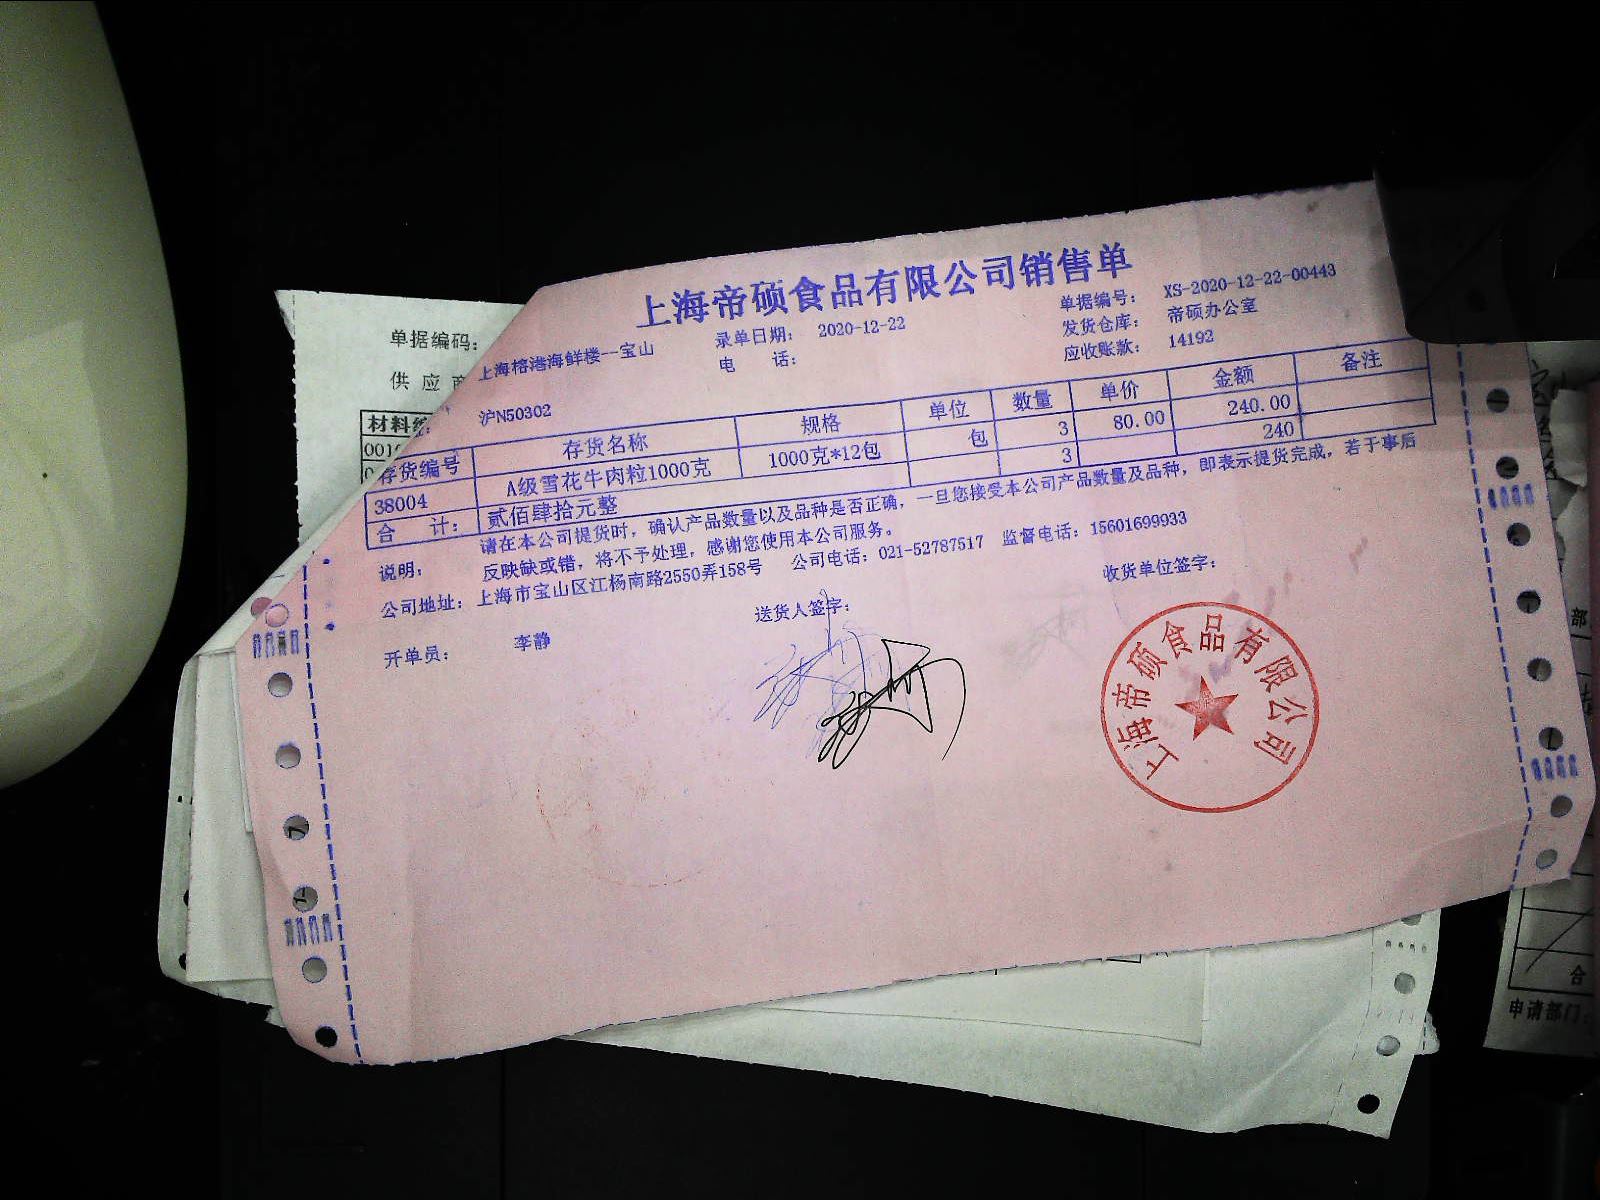 上海帝硕食品有限公司销售单
单据编码:
供应商
材料编
上海榕港海鲜楼--宝山 录单日期: 2020-12-22 单据编号: XS-2020-12-22-00443
电 话: 发货仓库: 帝硕办公室
沪N50302 应收账款: 14192
存货编号 存货名称 规格 单位 数量 单价 金额 备注
38004 A级雪花牛肉粒1000克 1000克*12包 包 3 80.00 240.00
合 计: 贰佰肆拾元整 3 240
说明: 请在本公司提货时, 确认产品数量以及品种是否正确, 一旦您接受本公司产品数量及品种, 即表示提货完成, 若于事后
反映缺或错, 将不予处理, 感谢您使用本公司服务。
公司地址: 上海市宝山区江杨南路2550弄158号 公司电话: 021-52787517 监督电话: 15601699933
开单员: 李静 送货人签字: 收货单位签字:
上海帝硕食品有限公司
部
合
申请部门: